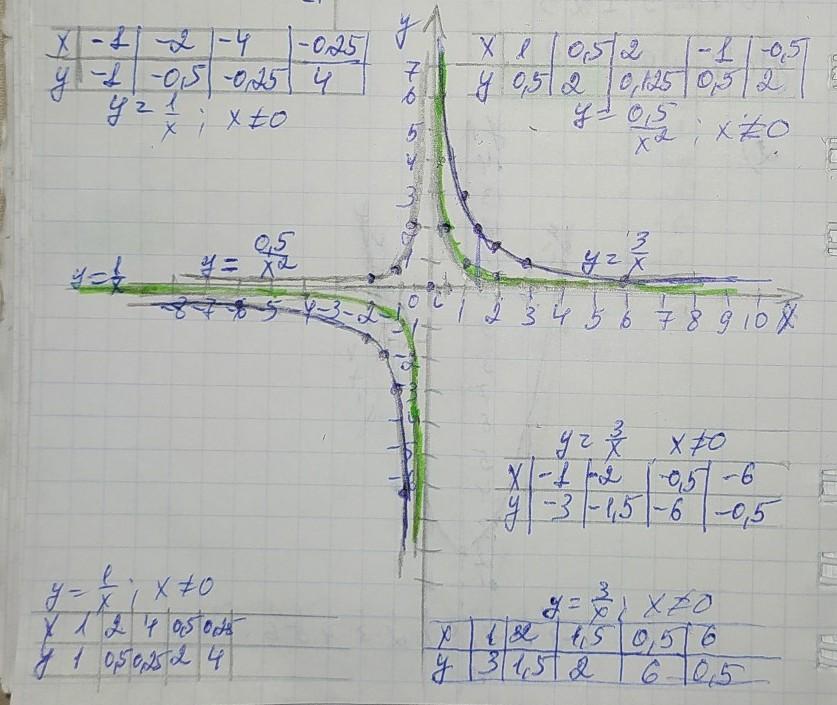 x -1 -2 -4 -0,25
y -1 -0,5 -0,25 4
y = 1/x ; x ≠ 0
x 1 0,5 2 -1 -0,5
y 0,5 2 0,125 0,5 2
y = 0,5/x² ; x ≠ 0
y
7
6
5
4
3
1
y = 1/x
y = 0,5/x²
y = 3/x
-8 -7 -6 5 -4 -3 -2 -1 0 1 2 3 4 5 6 7 8 9 10 X
y = 3/x x ≠ 0
x -1 -2 -0,5 -6
y -3 -1,5 -6 -0,5
y = 1/x ; x ≠ 0
x 1 2 4 0,5 0,25
y 1 0,5 0,25 2 4
y = 3/x ; x ≠ 0
x 1 2 1,5 0,5 6
y 3 1,5 2 6 0,5